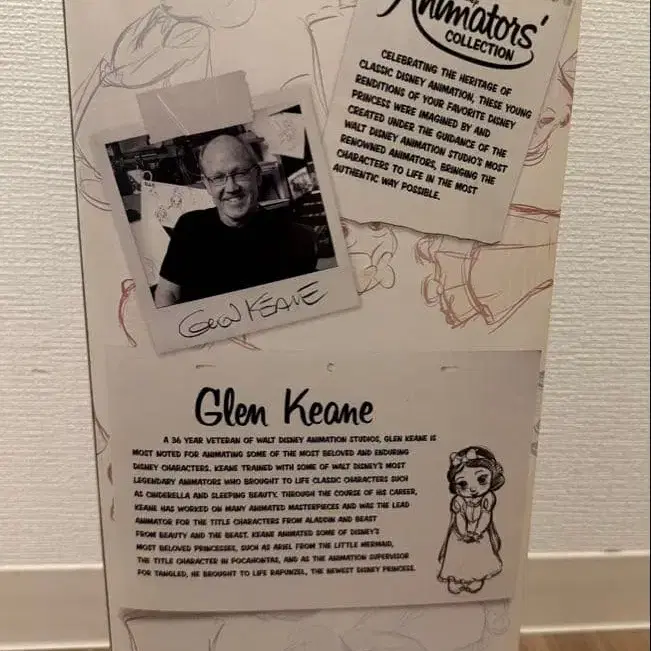 Animators'
COLLECTION
CELEBRATING THE HERITAGE OF
CLASSIC DISNEY ANIMATION, THESE YOUNG
RENDITIONS OF YOUR FAVORITE DISNEY
PRINCESS WERE IMAGINED BY AND
CREATED UNDER THE GUIDANCE OF THE
WALT DISNEY ANIMATION STUDIO'S MOST
RENOWNED ANIMATORS, BRINGING THE
CHARACTERS TO LIFE IN THE MOST
AUTHENTIC WAY POSSIBLE.
GLEN KEANE
Glen Keane
A 36 YEAR VETERAN OF WALT DISNEY ANIMATION STUDIOS, GLEN KEANE IS
MOST NOTED FOR ANIMATING SOME OF THE MOST BELOVED AND ENDURING
DISNEY CHARACTERS. KEANE TRAINED WITH SOME OF WALT DISNEY'S MOST
LEGENDARY ANIMATORS WHO BROUGHT TO LIFE CLASSIC CHARACTERS SUCH
AS CINDERELLA AND SLEEPING BEAUTY. THROUGH THE COURSE OF HIS CAREER,
KEANE HAS WORKED ON MANY ANIMATED MASTERPIECES AND WAS THE LEAD
ANIMATOR FOR THE TITLE CHARACTERS FROM ALADDIN AND BEAST
FROM BEAUTY AND THE BEAST. KEANE ANIMATED SOME OF DISNEY'S
MOST BELOVED PRINCESSES, SUCH AS ARIEL FROM THE LITTLE MERMAID,
THE TITLE CHARACTER IN POCAHONTAS, AND AS THE ANIMATION SUPERVISOR
FOR TANGLED, HE BROUGHT TO LIFE RAPUNZEL, THE NEWEST DISNEY PRINCESS.